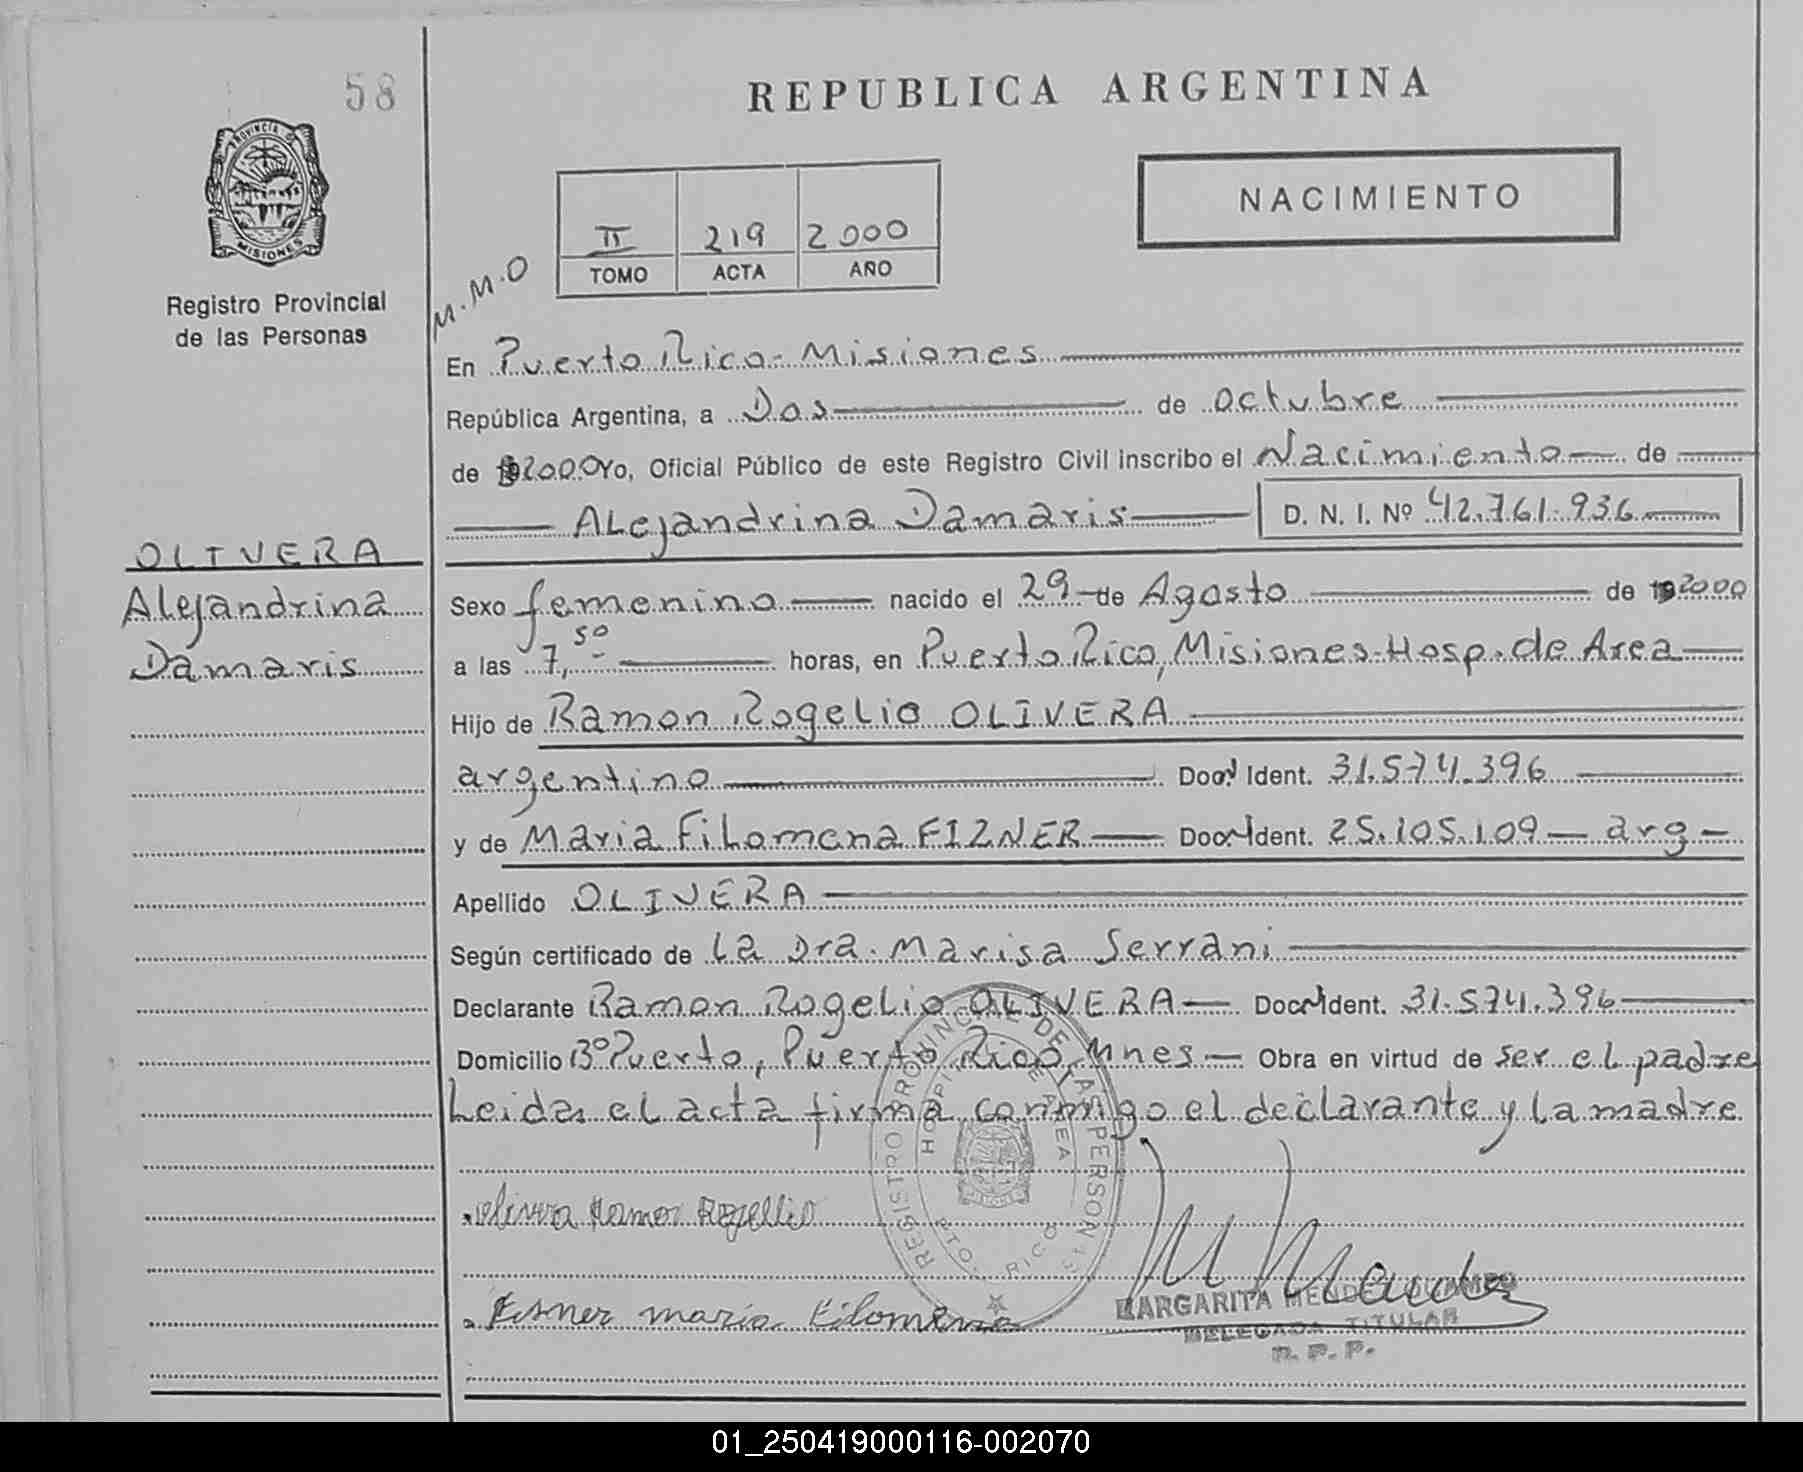 58
REPUBLICA ARGENTINA
PROVINCIA DE
MISIONES
Registro Provincial
de las Personas
NACIMIENTO
II 219 2000
TOMO ACTA AÑO
M.M.O
En Puerto Rico - Misiones
República Argentina, a Dos de octubre
de 2000 Yo, Oficial Público de este Registro Civil inscribo el Nacimiento de
Alejandrina Damaris D. N. I. Nº 42.761.936
OLIVERA
Alejandrina
Damaris
Sexo femenino nacido el 29 de Agosto de 2000
a las 7,50 horas, en Puerto Rico, Misiones-Hosp. de Area
Hijo de Ramon Rogelio OLIVERA
argentino Doc. Ident. 31.574.396
y de Maria Filomena FIZNER Doc. Ident. 25.105.109 - arg -
Apellido OLIVERA
Según certificado de La Dra. Marisa Serrani
Declarante Ramon Rogelio OLIVERA Doc. Ident. 31.574.396
Domicilio Bº Puerto, Puerto Rico, Mnes - Obra en virtud de ser el padre
Leida el acta firma conmigo el declarante y la madre
REGISTRO PROVINCIAL DE LAS PERSONAS
HOSPITAL DE AREA
PTO. RICO
MISIONES
Olivera Ramon Rogellio
Fisner maria Filomena
MARGARITA MENDEZ
DELEGADA TITULAR
R. P. P.
01_250419000116-002070